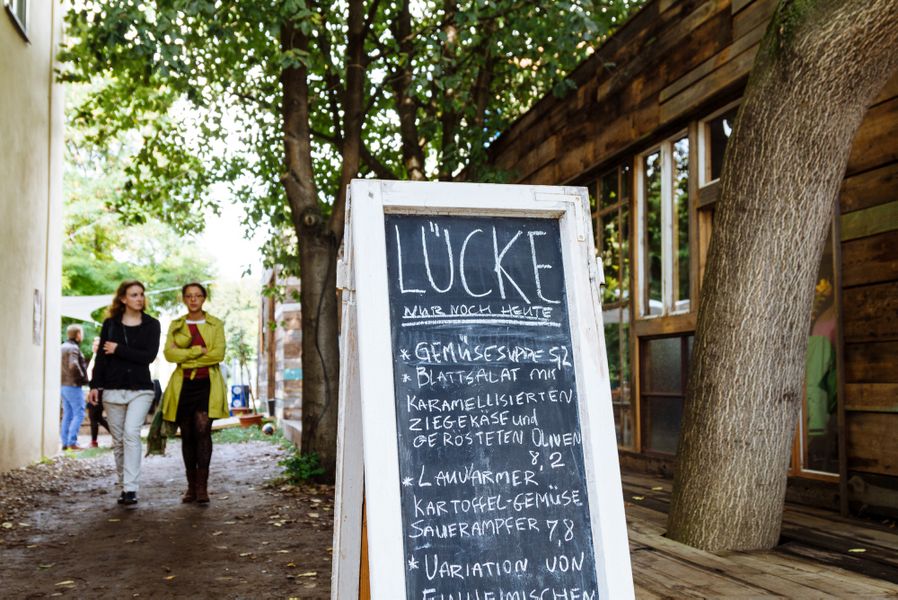 LÜCKE
NUR NOCH HEUTE
* GEMÜSESUPPE 5,2
* BLATTSALAT MIT
KARAMELLISIERTEN
ZIEGEKÄSE und
GERÖSTETEN OLIVEN
8,2
* LAUWARMER
KARTOFFEL-GEMÜSE
SAUERAMPFER 7,8
* VARIATION VON
EINHEIMISCHEN